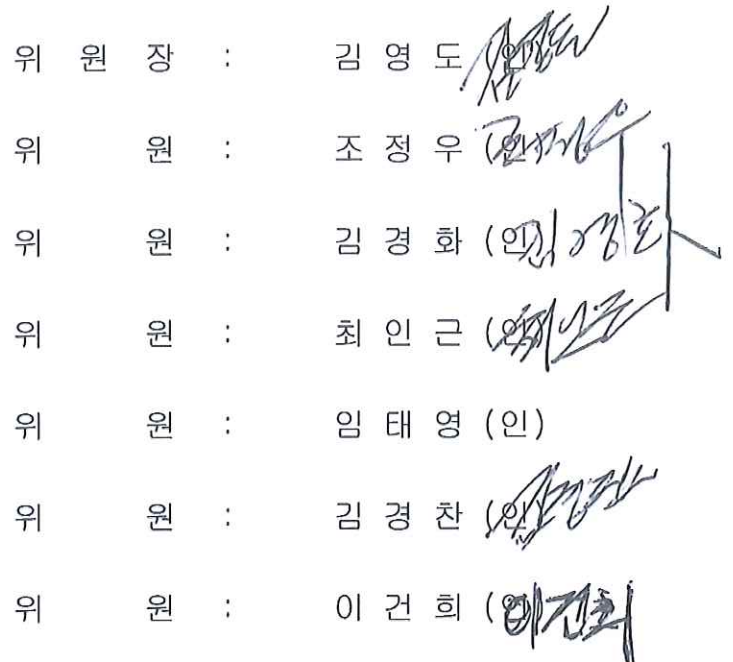 위 원 장 : 김 영 도 (인)
위 원 : 조 정 우 (인)
위 원 : 김 경 화 (인) 김경화
위 원 : 최 인 근 (인) 최인근
위 원 : 임 태 영 (인)
위 원 : 김 경 찬 (인)
위 원 : 이 건 희 (인) 이건희